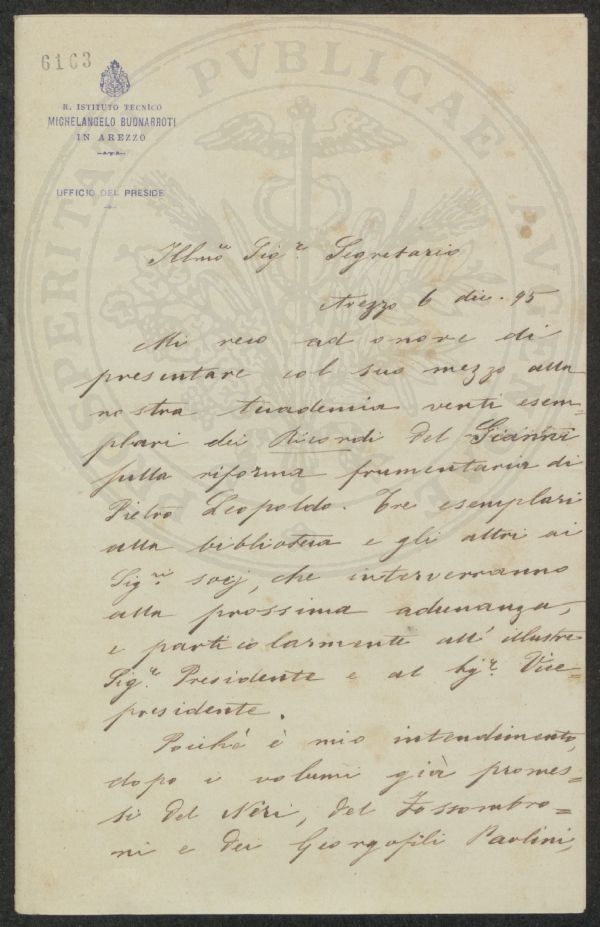 6163
R. ISTITUTO TECNICO
MICHELANGELO BUONARROTI
IN AREZZO
UFFICIO DEL PRESIDE
PROSPERITATI PVBLICAE AVGENDAE
Illmo Sigr Segretario
Arezzo 6 dic. 95
Mi reco ad onore di
presentare col suo mezzo alla
nostra Accademia venti esem=
plari dei Ricordi del Gianni
sulla riforma frumentaria di
Pietro Leopoldo. Tre esemplari
alla biblioteca e gli altri ai
Sigri socj, che interverranno
alla prossima adunanza,
e particolarmente all' illustre
Sigr. Presidente e al Sigr. Vice=
presidente.
Poiché è mio intendimento,
dopo i volumi già promes=
si del Neri, del Fossombro=
ni e dei Georgofili Paolini,